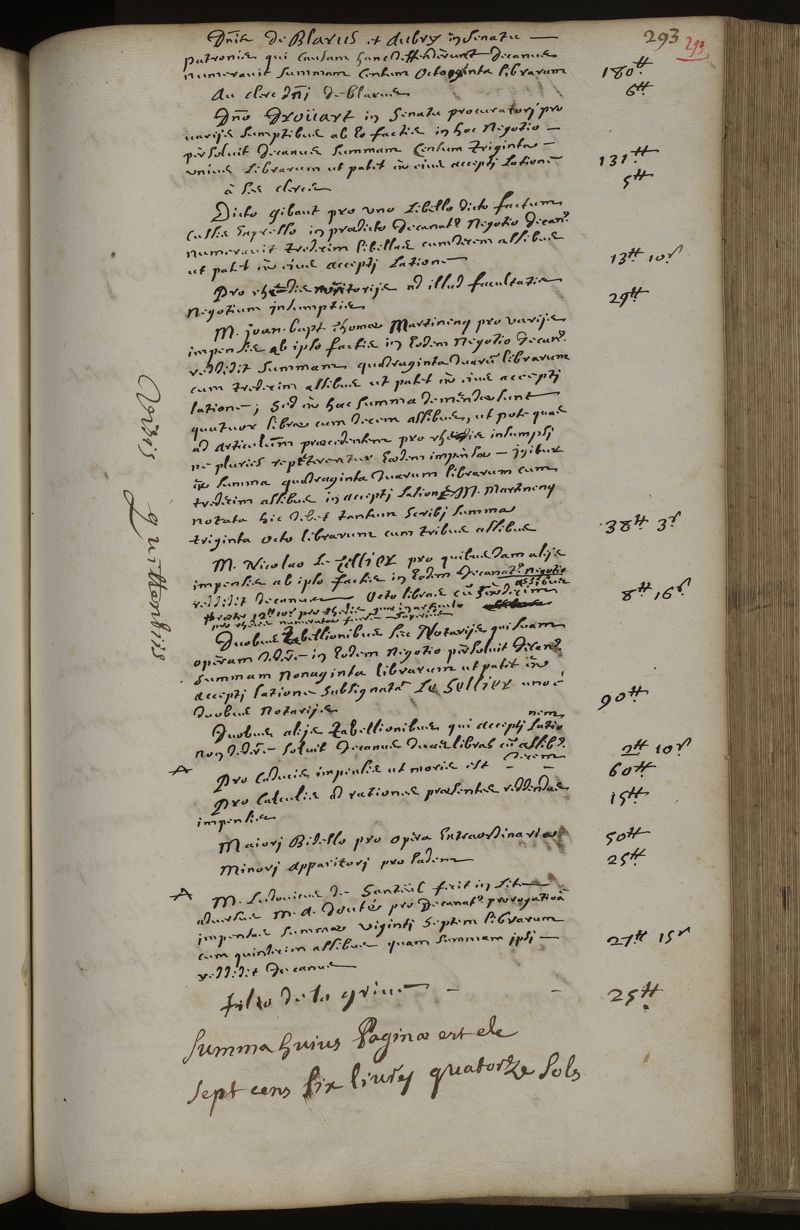 293 293
Dnis de Blarus et Aubry in Senatu —
patronis qui causam hanc deffenderunt decanus
numeravit summam centum octoginta librarum 180tt
Au clerc dnj de Blarus 6tt
Dno Droüart in Senatu procuratorj pro
varijs sumptibus ab eo factis in hoc negotio —
persoluit decanus summam centum triginta —
unius librarum ut patet in eius acceptj latione 131tt
à ses clercs 5tt
Dicto Gibaut pro uno libello dicto factum
cusso expresso in prædicto decanat9 negotio decan9
numeravit tredecim libellas cum decem assibus
ut patet in eius acceptj latione 13tt 10s
Pro rhedis ad illud facultatis
negotium insumptis 29tt
M. Joan. Bapt. Thomæ Martineng pro varijs
impensis ab ipso factis in eodem negotio decan9
reddidit summam quadraginta duarū librarum
cum tredecim assibus ut patet in eius acceptj
latione; sed in hac summa demendæ sunt
quatuor libræ cum decem assibus, ut pote quæ
ad articulum præcedentem pro rhedis insumptj
ne pluries repeterentur eædem impensæ — igitur
in summa quadraginta duarum librarum cum
tredecim assibus in acceptj latione M. Martineng
notata hic debet tantum scribj summa
triginta octo librarum cum tribus assibus 38tt 3s
M. Nicolao Le Tellier pro quibusdam alijs
impensis ab ipso factis in eodem decanat9 negotio
reddidit decanus octo libras cū sexdecim assibus 8tt 16s
præter 12tt 10s pro rhedis quæ in articulo
pro rhedis numeratæ fuere
Duobus Tabellionibus seu Notarijs qui suam
operam dedere in eodem negotio persoluit decan9
summam nonaginta librarum ut patet in
acceptj latione subsignata Le Sellier uno è
duobus notarijs 90tt
Duobus alijs tabellionibus qui acceptj lationem
non dedere soluit decanus duas libras cū assib9 decem 2tt 10s
A Pro caducis impensis ut moris est — — 60tt
Pro calculis ad rationes præsentes reddendas
impensis 15tt
Maiorj Bidello pro opera extraordinaria 50tt
Minorj apparitorj pro eadem 25tt
A M. Ludovicus de Santeul fecit in lite
adversus M. A. Doutés pro decanat9 prorogatione
impensas summæ vigintj septem librarum
cum quindecim assibus quam summam ipsj —
reddidit decanus 27tt 15s
filio de la grive — — 25tt
Summa huius Paginæ est de
sept cens six livres quatorze sols